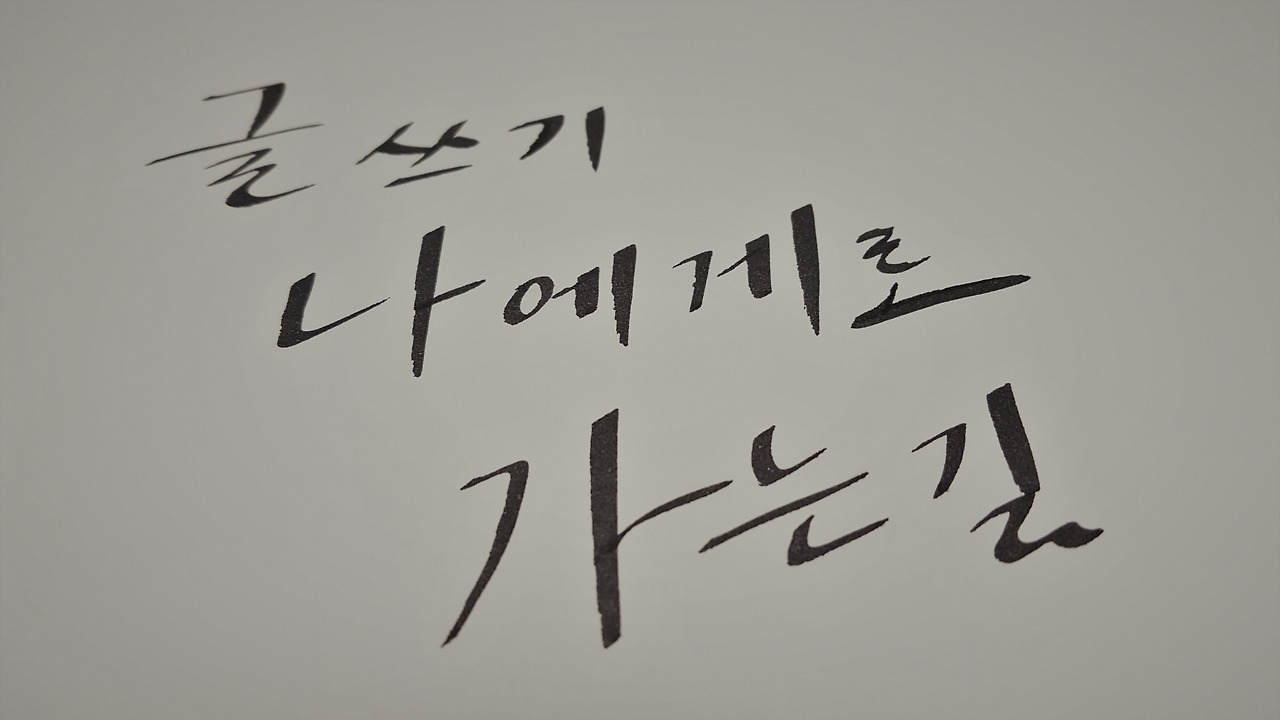 글쓰기
나에게로
가는길